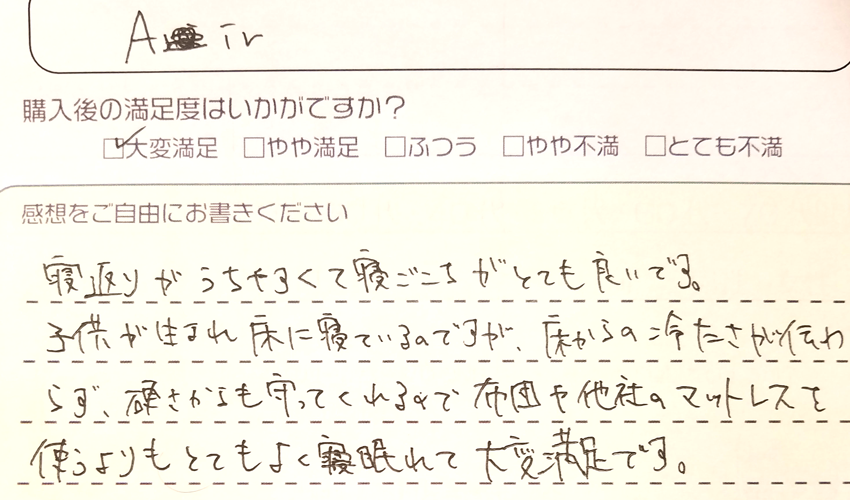 A ir
購入後の満足度はいかがですか?
☑大変満足 □やや満足 □ふつう □やや不満 □とても不満
感想をご自由にお書きください
寝返りがうちやすくて寝ごこちがとても良いです。
子供が生まれ床に寝ているのですが、床からの冷たさが伝わ
らず、硬さからも守ってくれるので布団や他社のマットレスを
使うよりもとてもよく寝眠れて大変満足です。